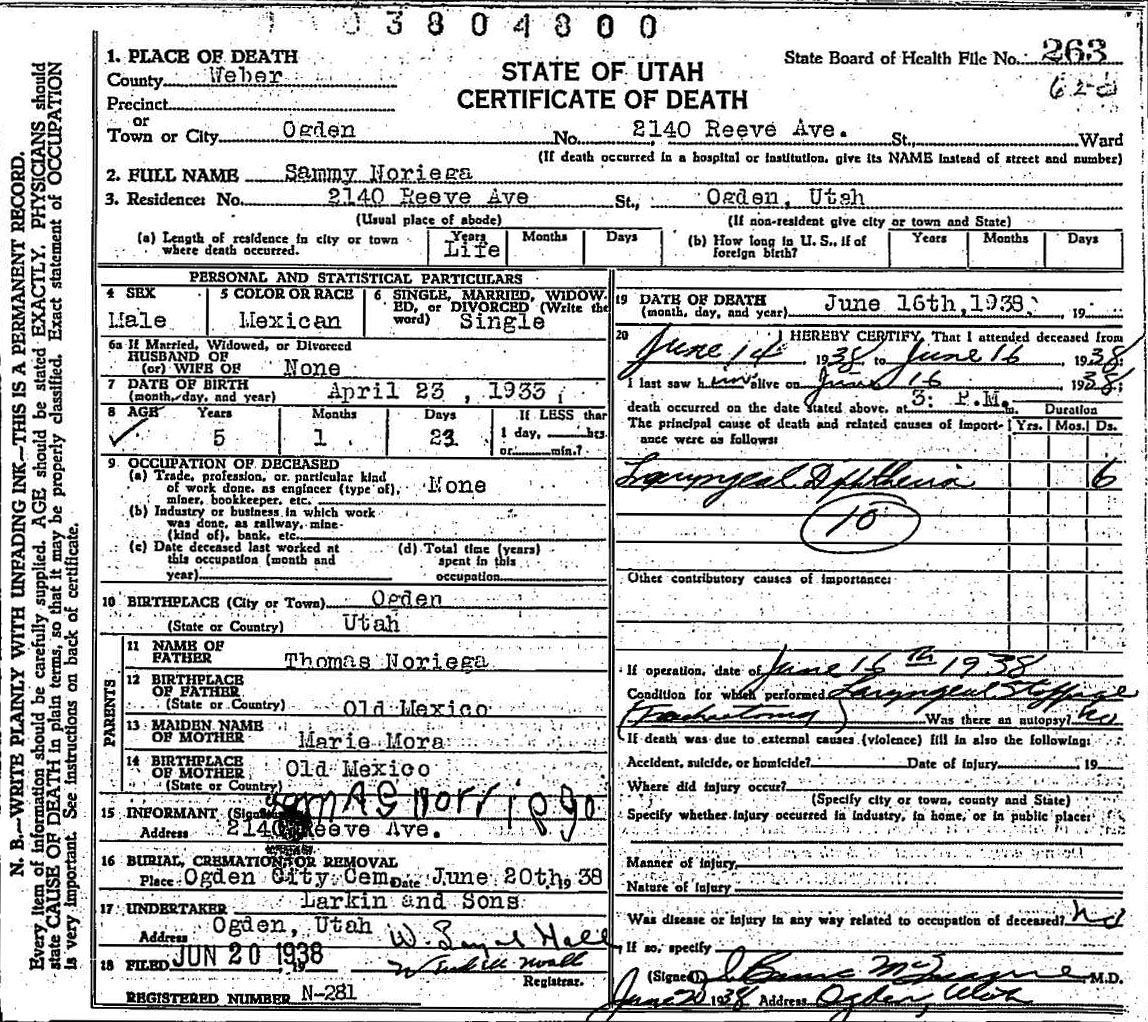 03804800
1. PLACE OF DEATH
County Weber
Precinct
or
Town or City Ogden No. 2140 Reeve Ave. St., Ward
(If death occurred in a hospital or institution, give its NAME instead of street and number)
STATE OF UTAH
CERTIFICATE OF DEATH
State Board of Health File No. 263
2. FULL NAME Sammy Noriega
3. Residence: No. 2140 Reeve Ave St., Ogden, Utah
(Usual place of abode) (If non-resident give city or town and State)
(a) Length of residence in city or town where death occurred. Years Life Months Days
(b) How long in U. S., if of foreign birth? Years Months Days
PERSONAL AND STATISTICAL PARTICULARS
4 SEX Male
5 COLOR OR RACE Mexican
6 SINGLE, MARRIED, WIDOWED, or DIVORCED (Write the word) Single
6a If Married, Widowed, or Divorced
HUSBAND OF
(or) WIFE OF None
7 DATE OF BIRTH
(month, day, and year) April 23, 1933
8 AGE Years 5 Months 1 Days 23 If LESS than 1 day, hrs. or min.?
9 OCCUPATION OF DECEASED
(a) Trade, profession, or particular kind of work done, as engineer (type of), miner, bookkeeper, etc. None
(b) Industry or business in which work was done, as railway, mine (kind of), bank, etc.
(c) Date deceased last worked at this occupation (month and year)
(d) Total time (years) spent in this occupation
10 BIRTHPLACE (City or Town) Ogden
(State or Country) Utah
PARENTS
11 NAME OF FATHER Thomas Noriega
12 BIRTHPLACE OF FATHER
(State or Country) Old Mexico
13 MAIDEN NAME OF MOTHER Marie Mora
14 BIRTHPLACE OF MOTHER
(State or Country) Old Mexico
15 INFORMANT (Signed)
Address 2140 Reeve Ave.
16 BURIAL, CREMATION OR REMOVAL
Place Ogden City Cem. Date June 20th, 1938
17 UNDERTAKER Larkin and Sons
Address Ogden, Utah
18 FILED JUN 20 1938 19
Registrar.
REGISTERED NUMBER N-281
19 DATE OF DEATH
(month, day, and year) June 16th, 1938, 19
20 I HEREBY CERTIFY, That I attended deceased from
June 14 1938 to June 16 1938
I last saw him alive on June 16 1938
death occurred on the date stated above, at 3: P.M. m.
The principal cause of death and related causes of importance were as follows:
Duration
Yrs. Mos. Ds.
Laryngeal Diphtheria 6
10
Other contributory causes of importance:
If operation, date of June 16th 1938
Condition for which performed Laryngeal Stoppage
(Tracheotomy) Was there an autopsy? no
If death was due to external causes (violence) fill in also the following:
Accident, suicide, or homicide? Date of injury 19
Where did injury occur?
(Specify city or town, county and State)
Specify whether injury occurred in industry, in home, or in public place:
Manner of injury
Nature of injury
Was disease or injury in any way related to occupation of deceased? No
If so, specify
(Signed) M.D.
June 20 1938 Address Ogden, Utah
N. B.—WRITE PLAINLY WITH UNFADING INK—THIS IS A PERMANENT RECORD.
Every item of information should be carefully supplied. AGE should be stated EXACTLY. PHYSICIANS should
state CAUSE OF DEATH in plain terms, so that it may be properly classified. Exact statement of OCCUPATION
is very important. See instructions on back of certificate.